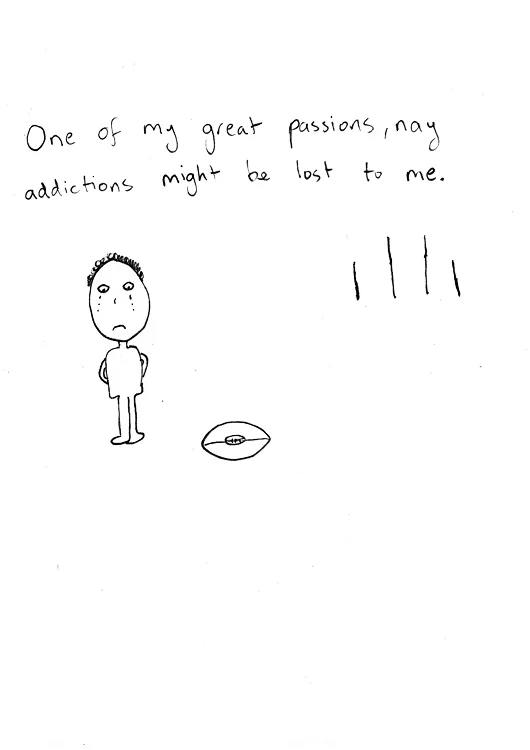 One of my great passions, nay
addictions might be lost to me.